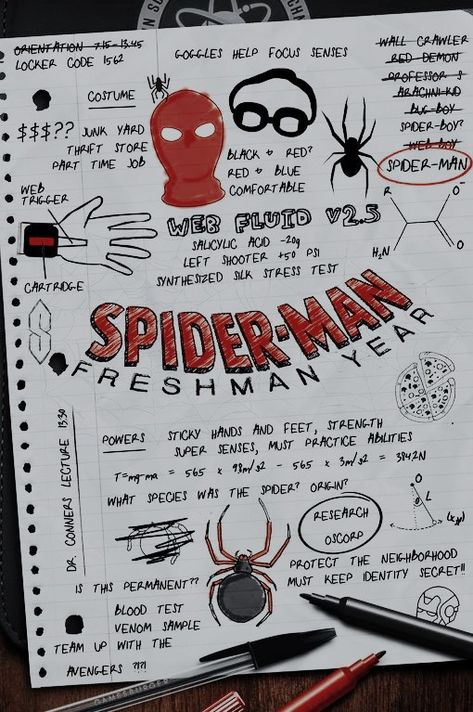 ORIENTATION 7.15 - 13.45
LOCKER CODE 1562
GOGGLES HELP FOCUS SENSES
WALL CRAWLER
RED DEMON
PROFESSOR S
ARACHNI-KID
BUG-BOY
SPIDER-BOY?
WEB-BOY
SPIDER-MAN
COSTUME
$$$?? JUNK YARD
THRIFT STORE
PART TIME JOB
BLACK + RED?
RED + BLUE
COMFORTABLE
WEB
TRIGGER
CARTRIDGE
WEB FLUID V2.5
SALICYLIC ACID -20g
LEFT SHOOTER +50 PSI
SYNTHESIZED SILK STRESS TEST
R
O
O
H₂N
SPIDER-MAN
FRESHMAN YEAR
DR. CONNERS LECTURE 13:30
POWERS
STICKY HANDS AND FEET, STRENGTH
SUPER SENSES, MUST PRACTICE ABILITIES
T=mg-ma = 565 x 98m/s2 - 565 x 3m/s2 = 384.2N
WHAT SPECIES WAS THE SPIDER? ORIGIN?
RESEARCH
OSCORP
O
L
(x,y)
IS THIS PERMANENT??
BLOOD TEST
VENOM SAMPLE
TEAM UP WITH THE
AVENGERS ?!?!
PROTECT THE NEIGHBORHOOD
MUST KEEP IDENTITY SECRET!!